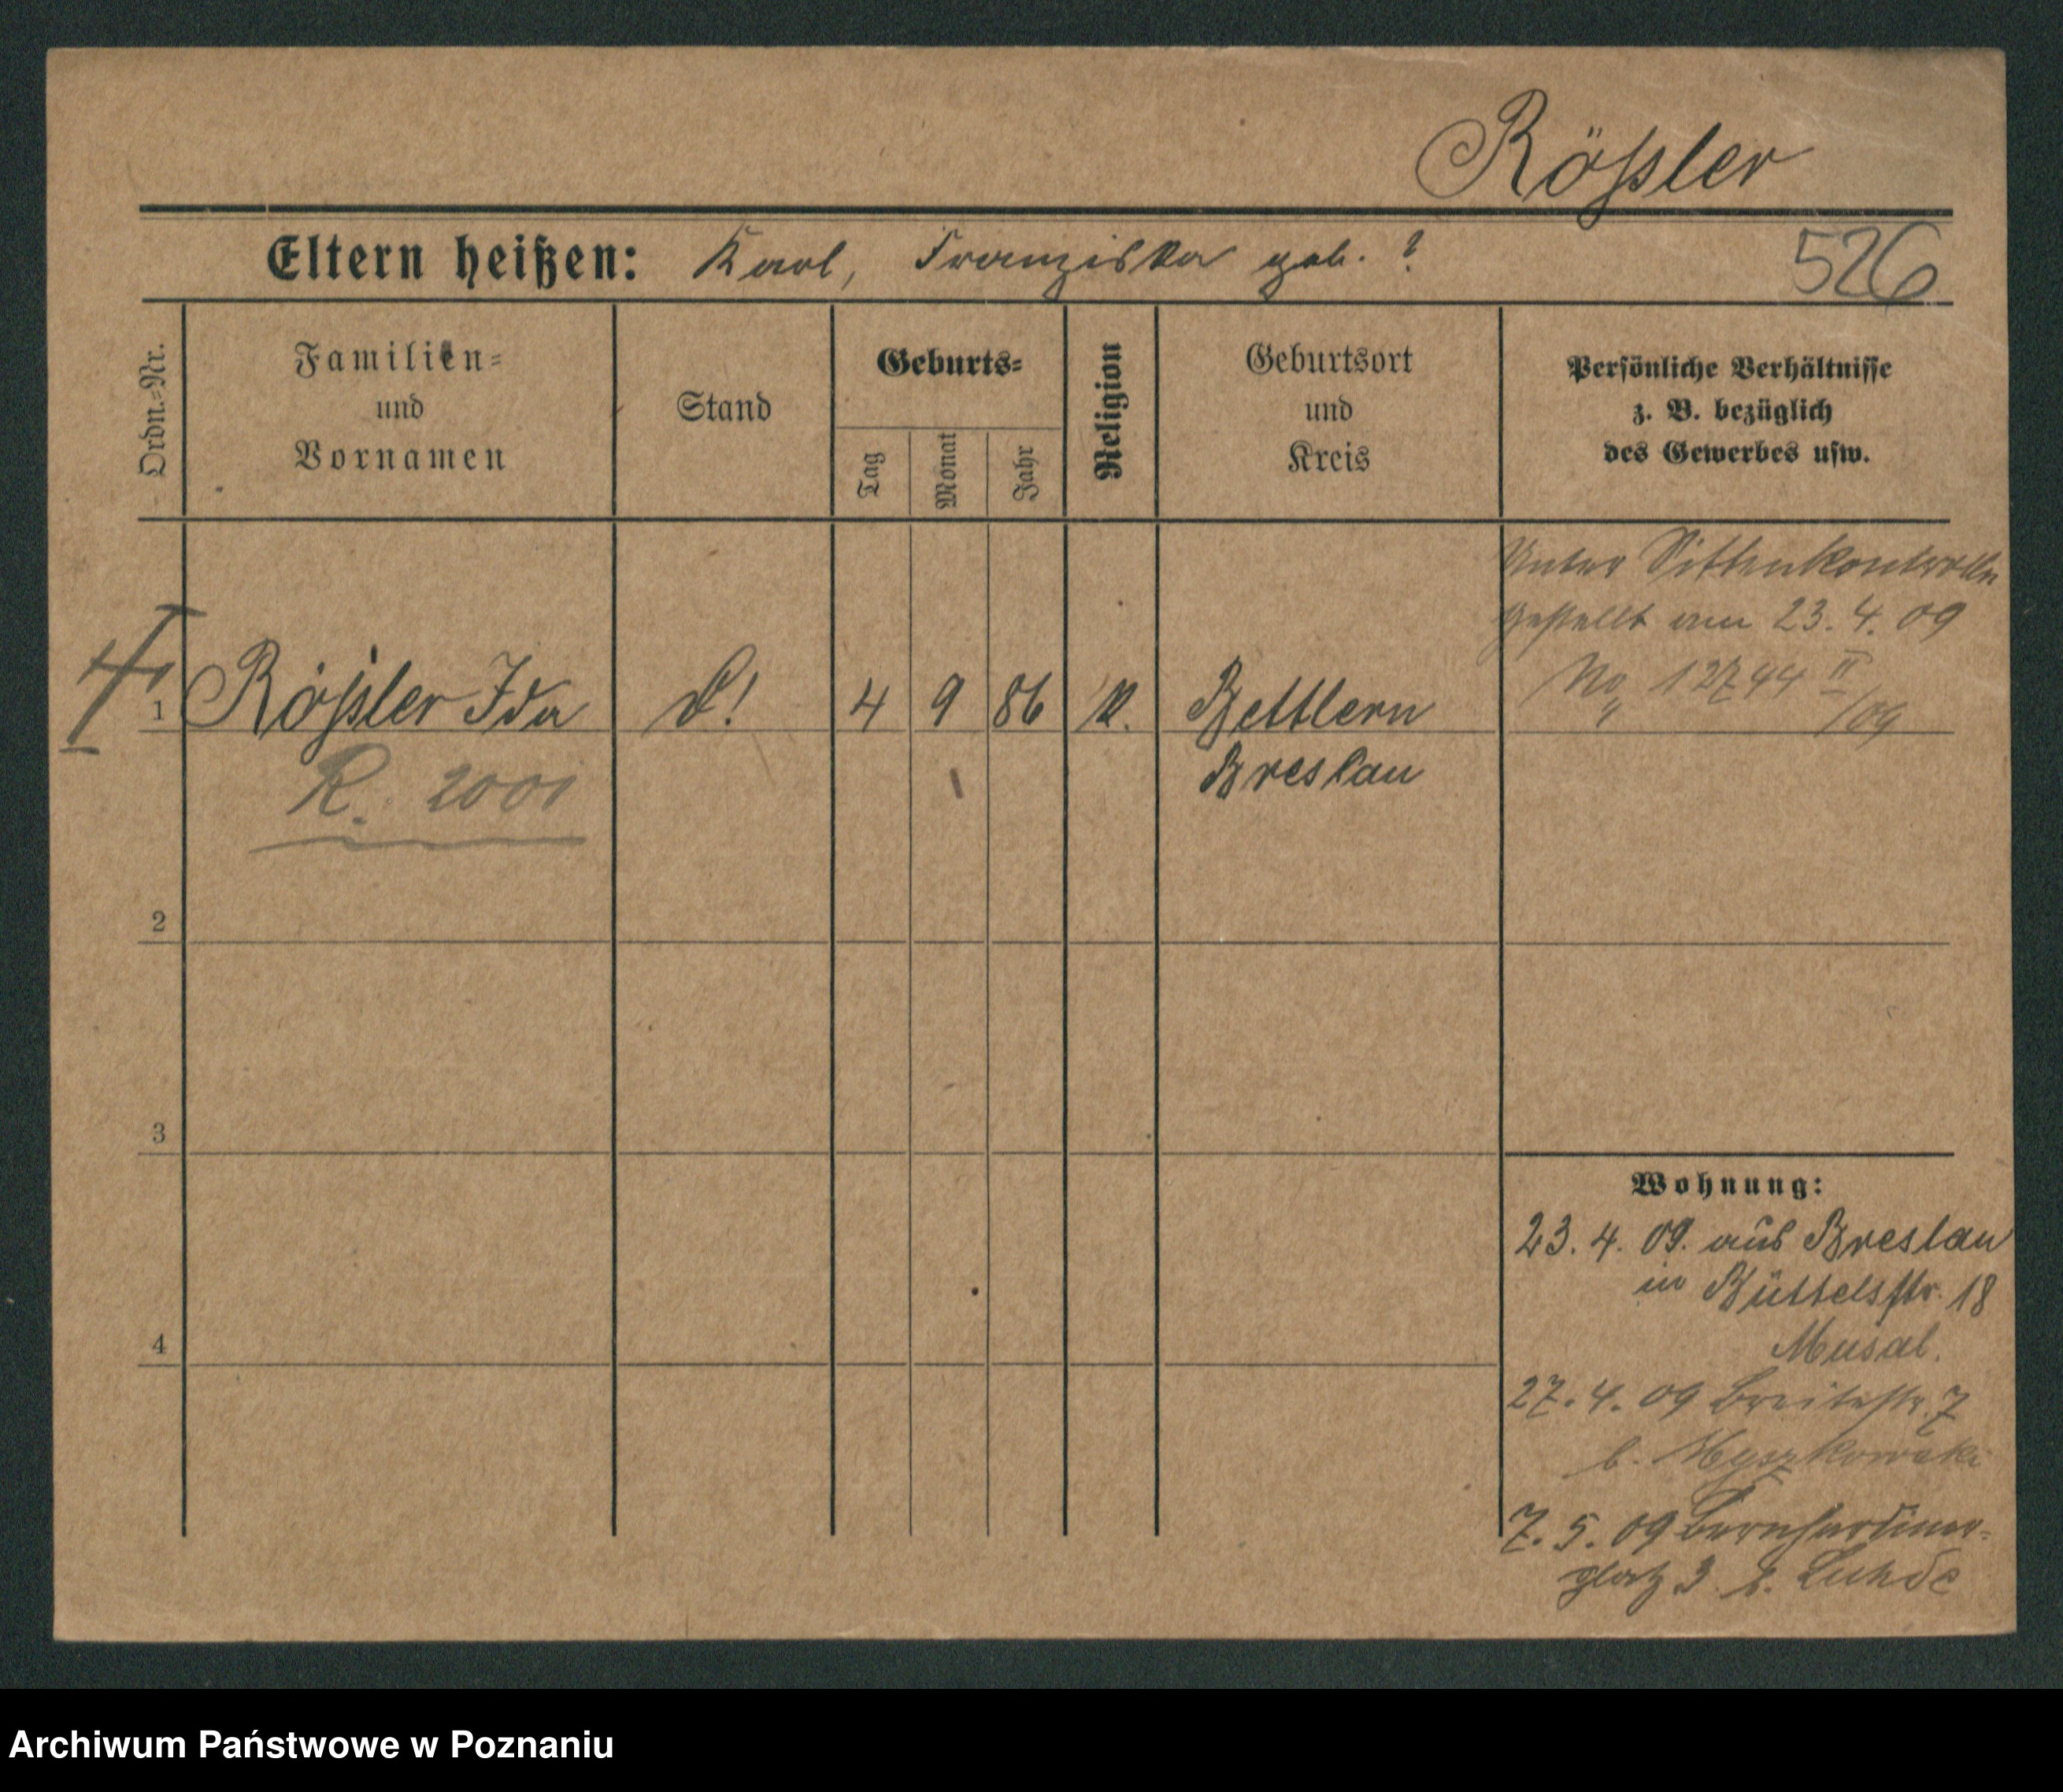 Rößler
Eltern heißen: Karl, Franziska geb. ?
526
Ordn.-Nr.
Familien-
und
Vornamen
Stand
Geburts-
Tag
Monat
Jahr
Religion
Geburtsort
und
Kreis
Persönliche Verhältnisse
z. B. bezüglich
des Gewerbes usw.
Unter Sittenkontrolle
gestellt am 23. 4. 09
No 12744 II
/09
1 Rößler Ida 4 9 86 K. Bettlern
R. 2001 Breslau
2
3
4
Wohnung:
23. 4. 09. aus Breslau
in Büttelstr. 18
Musal.
27. 4. 09 Breitestr. 7
b. Myszkowski
7. 5. 09 Bernhardiner-
platz 3 b. Luhde
Archiwum Państwowe w Poznaniu